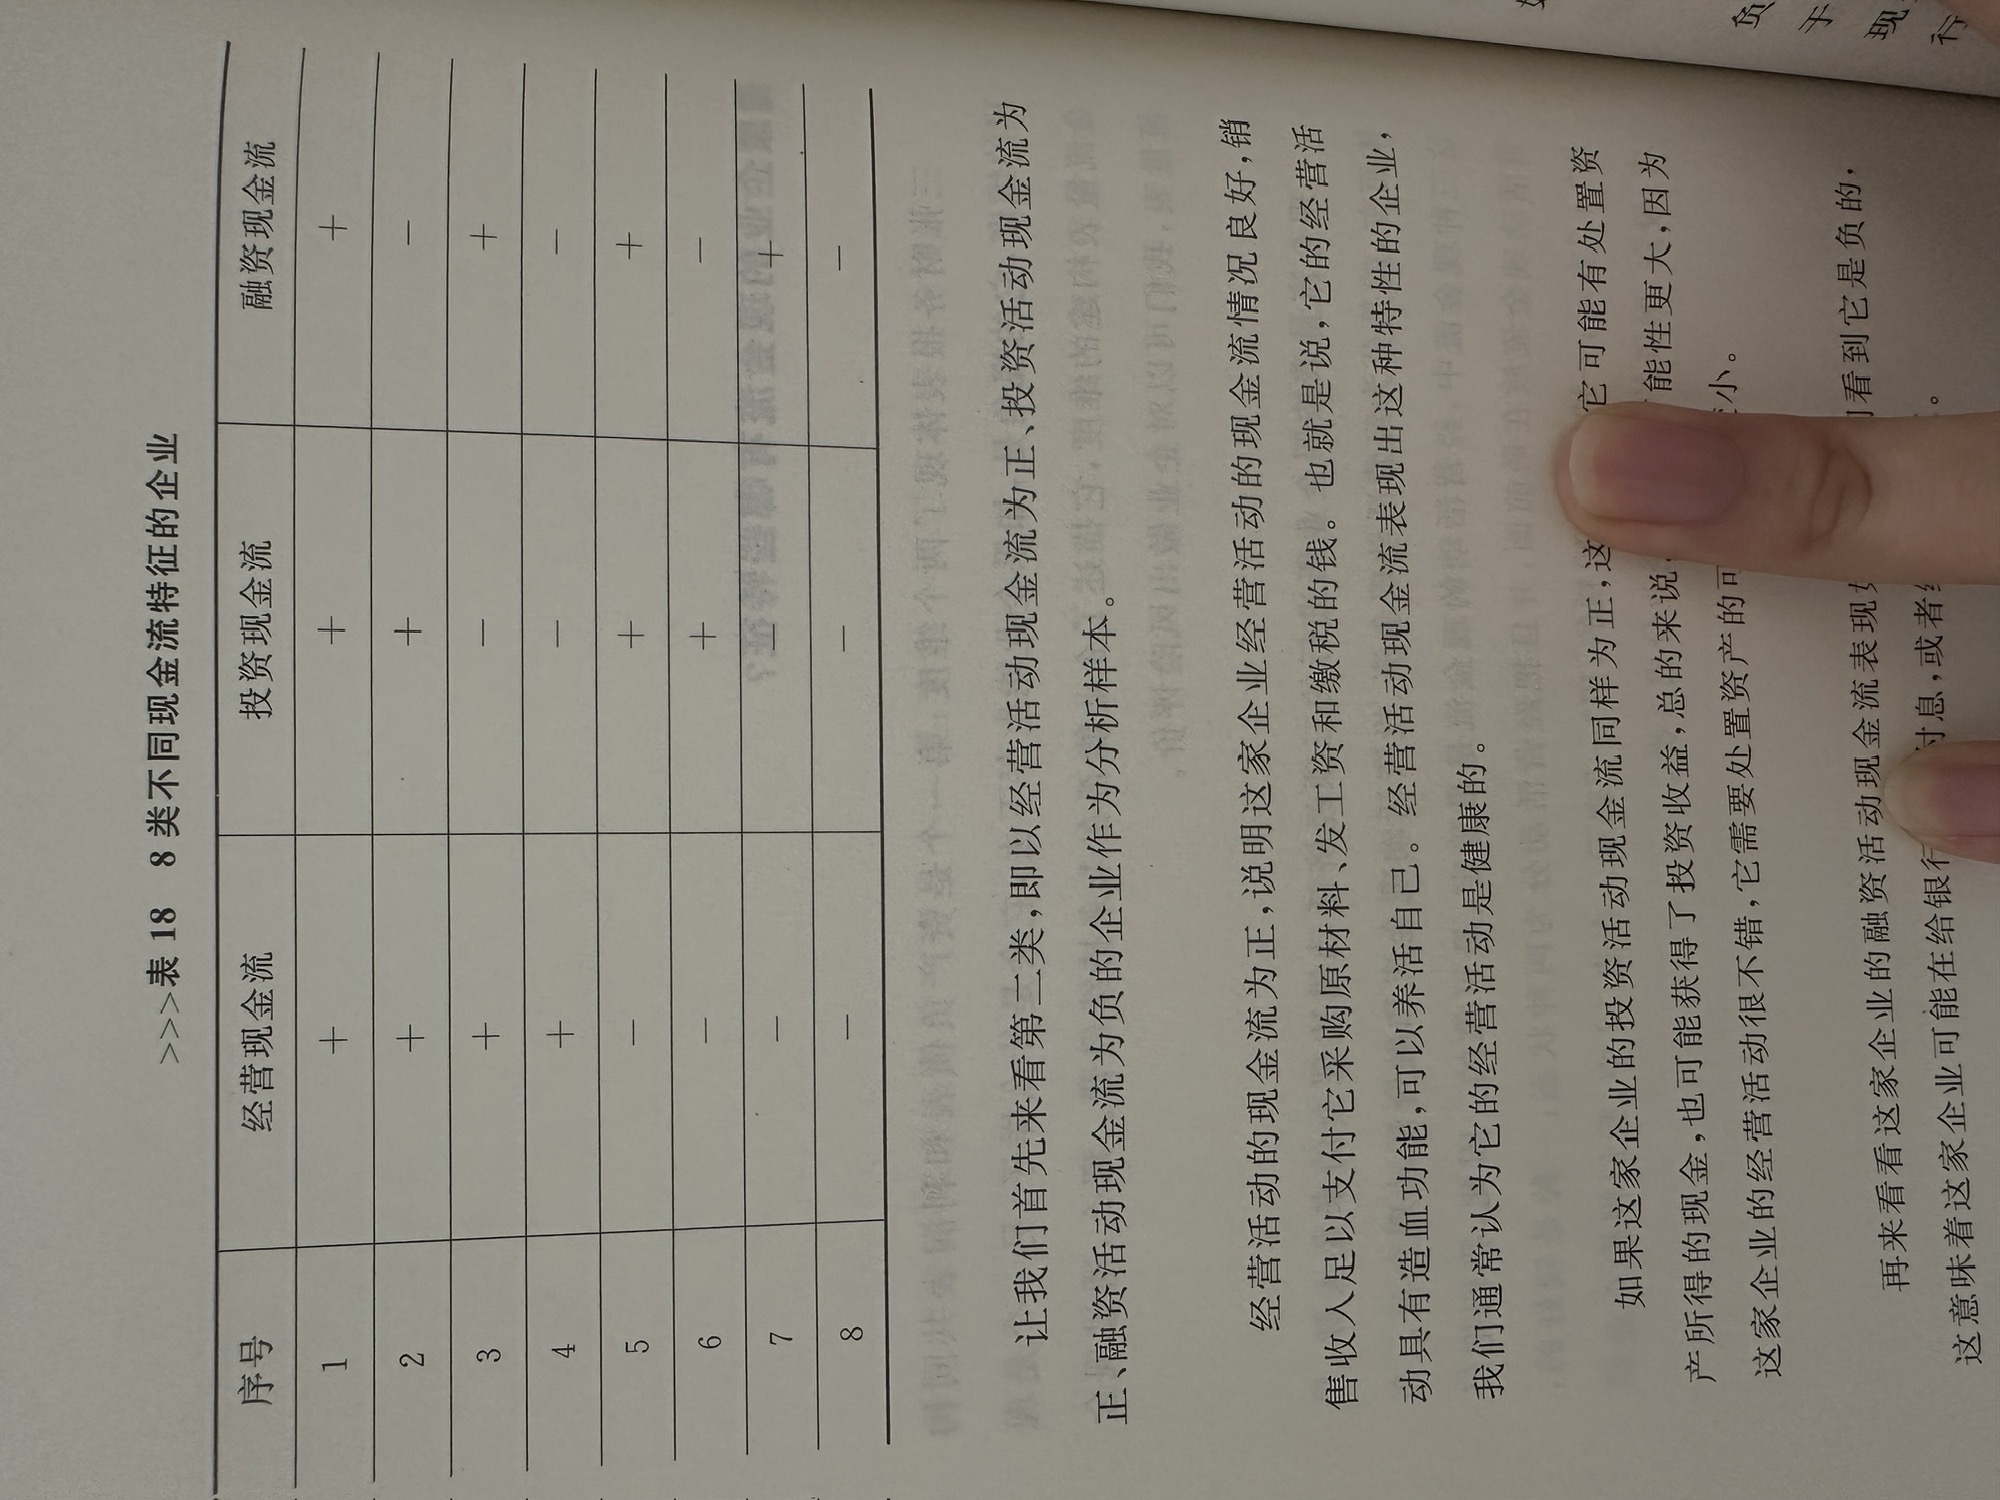 >>>表 18 8 类不同现金流特征的企业
序号 经营现金流 投资现金流 融资现金流
1 + + +
2 + + −
3 + − +
4 + − −
5 − + +
6 − + −
7 − − +
8 − − −
让我们首先来看第二类，即以经营活动现金流为正、投资活动现金流为
正、融资活动现金流为负的企业作为分析样本。
经营活动的现金流为正，说明这家企业经营活动的现金流情况良好，销
售收入足以支付它采购原材料、发工资和缴税的钱。也就是说，它的经营活
动具有造血功能，可以养活自己。经营活动现金流表现出这种特性的企业，
我们通常认为它的经营活动是健康的。
如果这家企业的投资活动现金流同样为正，这 它可能有处置资
产所得的现金，也可能获得了投资收益，总的来说， 能性更大，因为
这家企业的经营活动很不错，它需要处置资产的可 小。
再来看看这家企业的融资活动现金流表现 看到它是负的，
这意味着这家企业可能在给银行 付息，或者 。
负
于
现
行